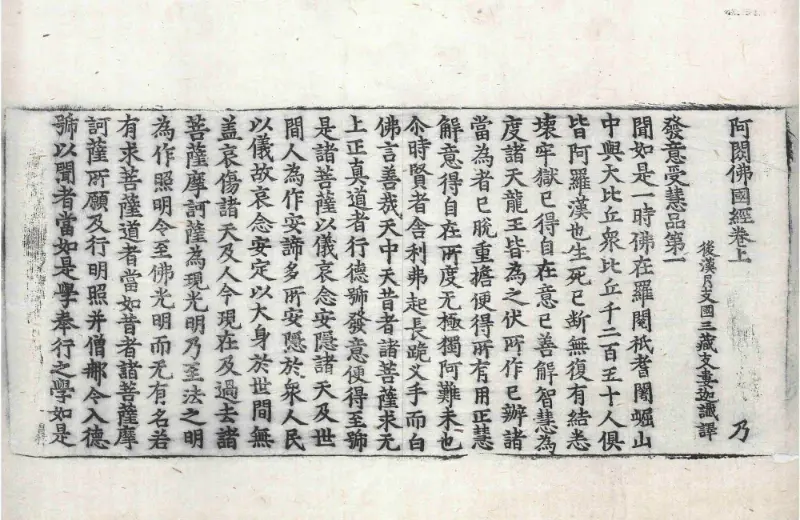 阿閦佛國經卷上 乃
後漢月支國三藏支婁迦讖譯
發意受慧品第一
聞如是一時佛在羅閱衹耆闍崛山
中與大比丘衆比丘千二百五十人俱
皆阿羅漢也生死已斷無復有結悉
壞牢獄已得自在意已善解智慧爲
度諸天龍王皆爲之伏所作已辦諸
當爲者已脫重擔便得所有用正慧
解意得自在所度无極獨阿難未也
尒時賢者舍利弗起長跪叉手而白
佛言善哉天中天昔者諸菩薩求无
上正真道者行德號發意便得至號
是諸菩薩以儀哀念安隱諸天及世
間人爲作安諦多所安隱於衆人民
以儀故哀念安定以大身於世間無
盖哀傷諸天及人今現在及過去諸
菩薩摩訶薩爲現光明乃至法之明
為作照明令至佛光明而无有名若
有求菩薩道者當如昔者諸菩薩摩
訶薩所願及行明照并僧那令入德
號以聞者當如是學奉行之學如是